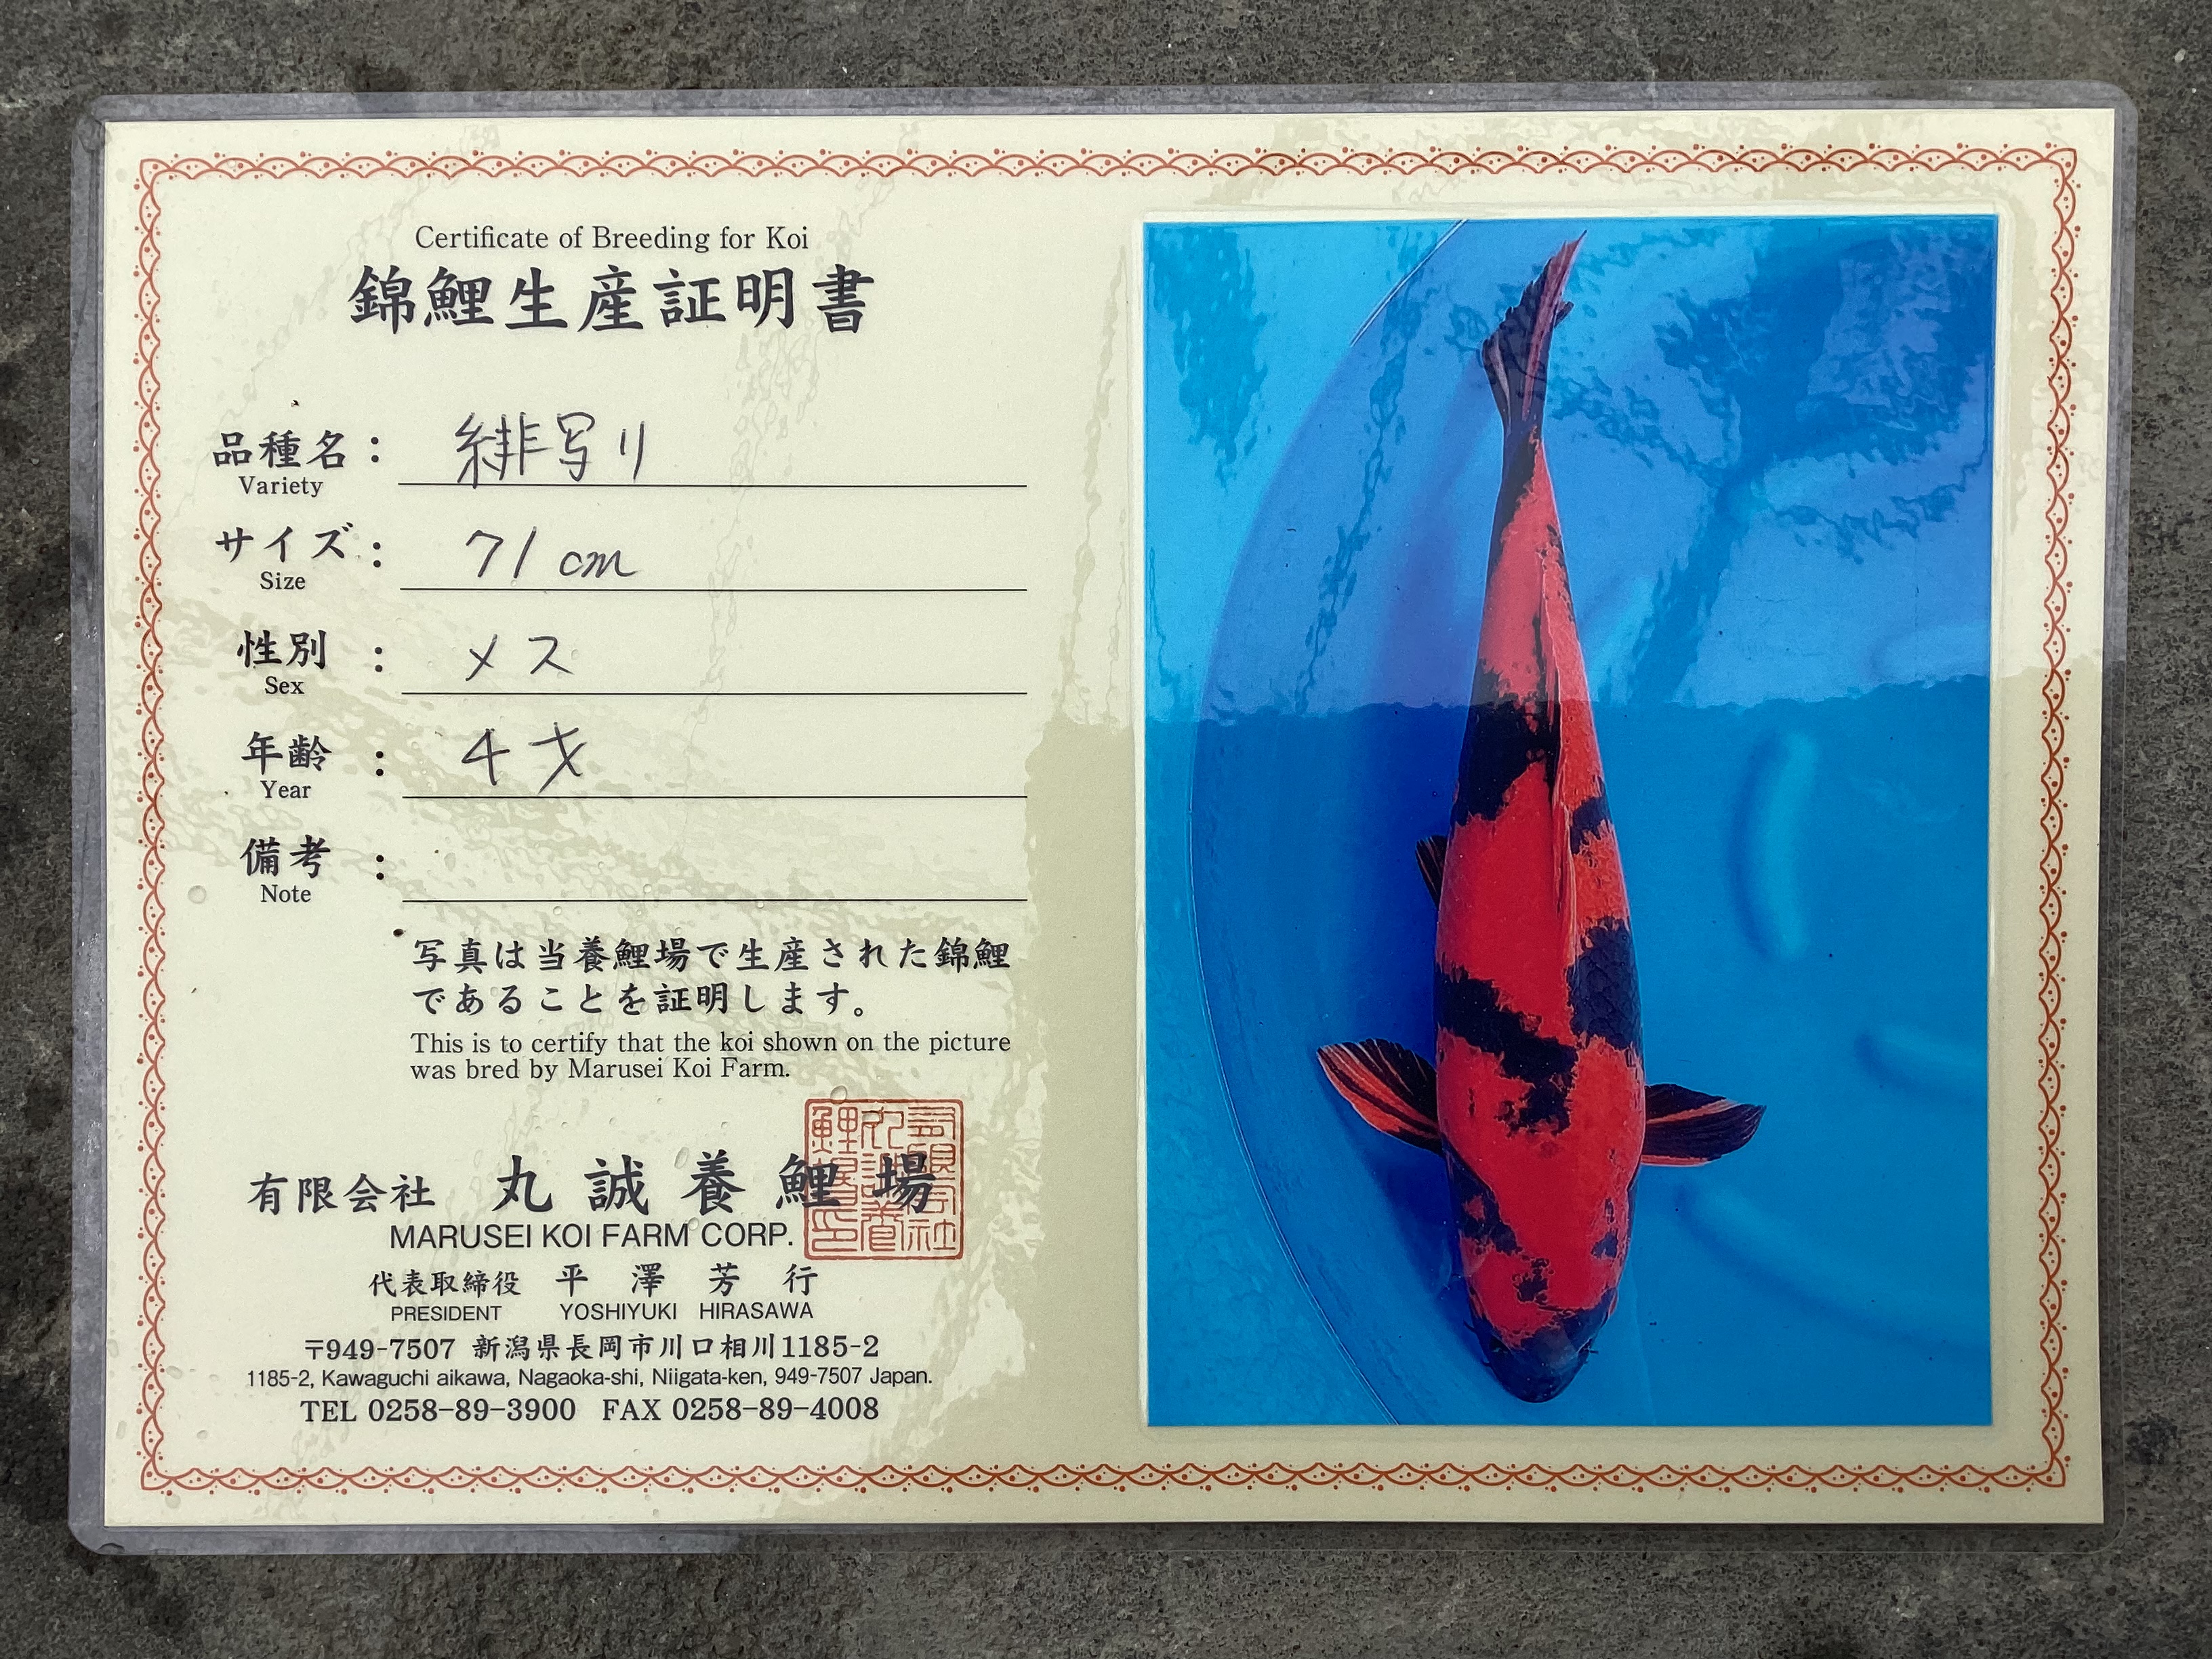 Certificate of Breeding for Koi
錦鯉生産証明書
品種名： 緋写り
Variety
サイズ： 71 cm
Size
性別： メス
Sex
年齢： 4才
Year
備考：
Note
写真は当養鯉場で生産された錦鯉
であることを証明します。
This is to certify that the koi shown on the picture
was bred by Marusei Koi Farm.
有限会社 丸誠養鯉場
MARUSEI KOI FARM CORP.
代表取締役 平澤芳行
PRESIDENT YOSHIYUKI HIRASAWA
〒949-7507 新潟県長岡市川口相川1185-2
1185-2, Kawaguchi aikawa, Nagaoka-shi, Niigata-ken, 949-7507 Japan.
TEL 0258-89-3900 FAX 0258-89-4008